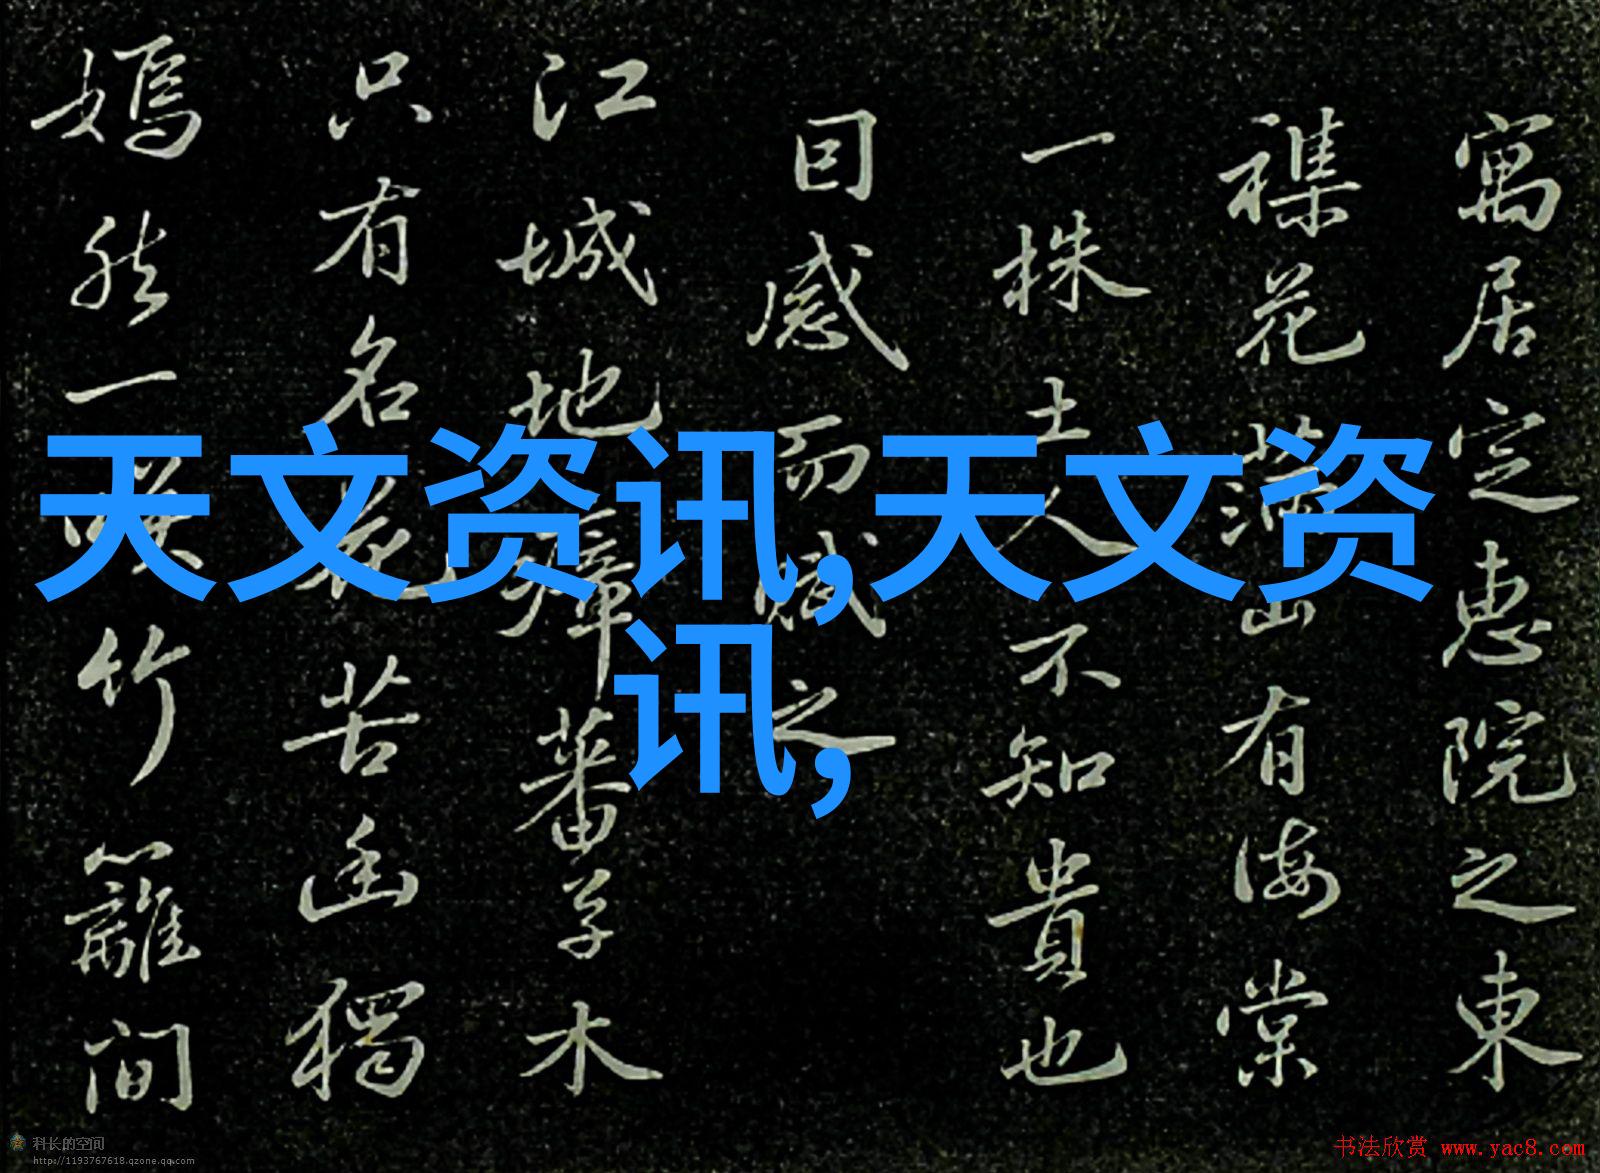 寓居定惠院之東
襍花滿山有海棠
一株土人不知貴也
因感而賦之
江城地瘴蕃草木
只有名花苦幽獨
嫣然一笑竹籬間
天文资讯,天文资
讯,
科长的空间
http://1193767618.qzone.qq.com
书法欣赏 www.yac8.com